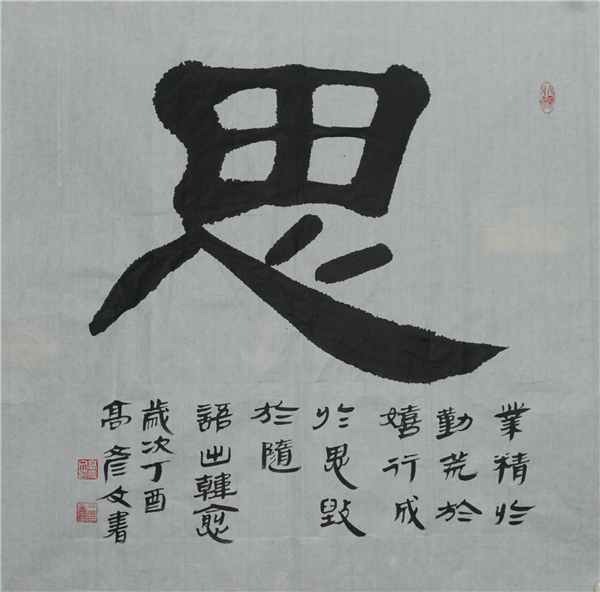 思
業精於
勤荒於
嬉行成
於思毀
於隨
語出韓愈
歲次丁酉
高彥文書